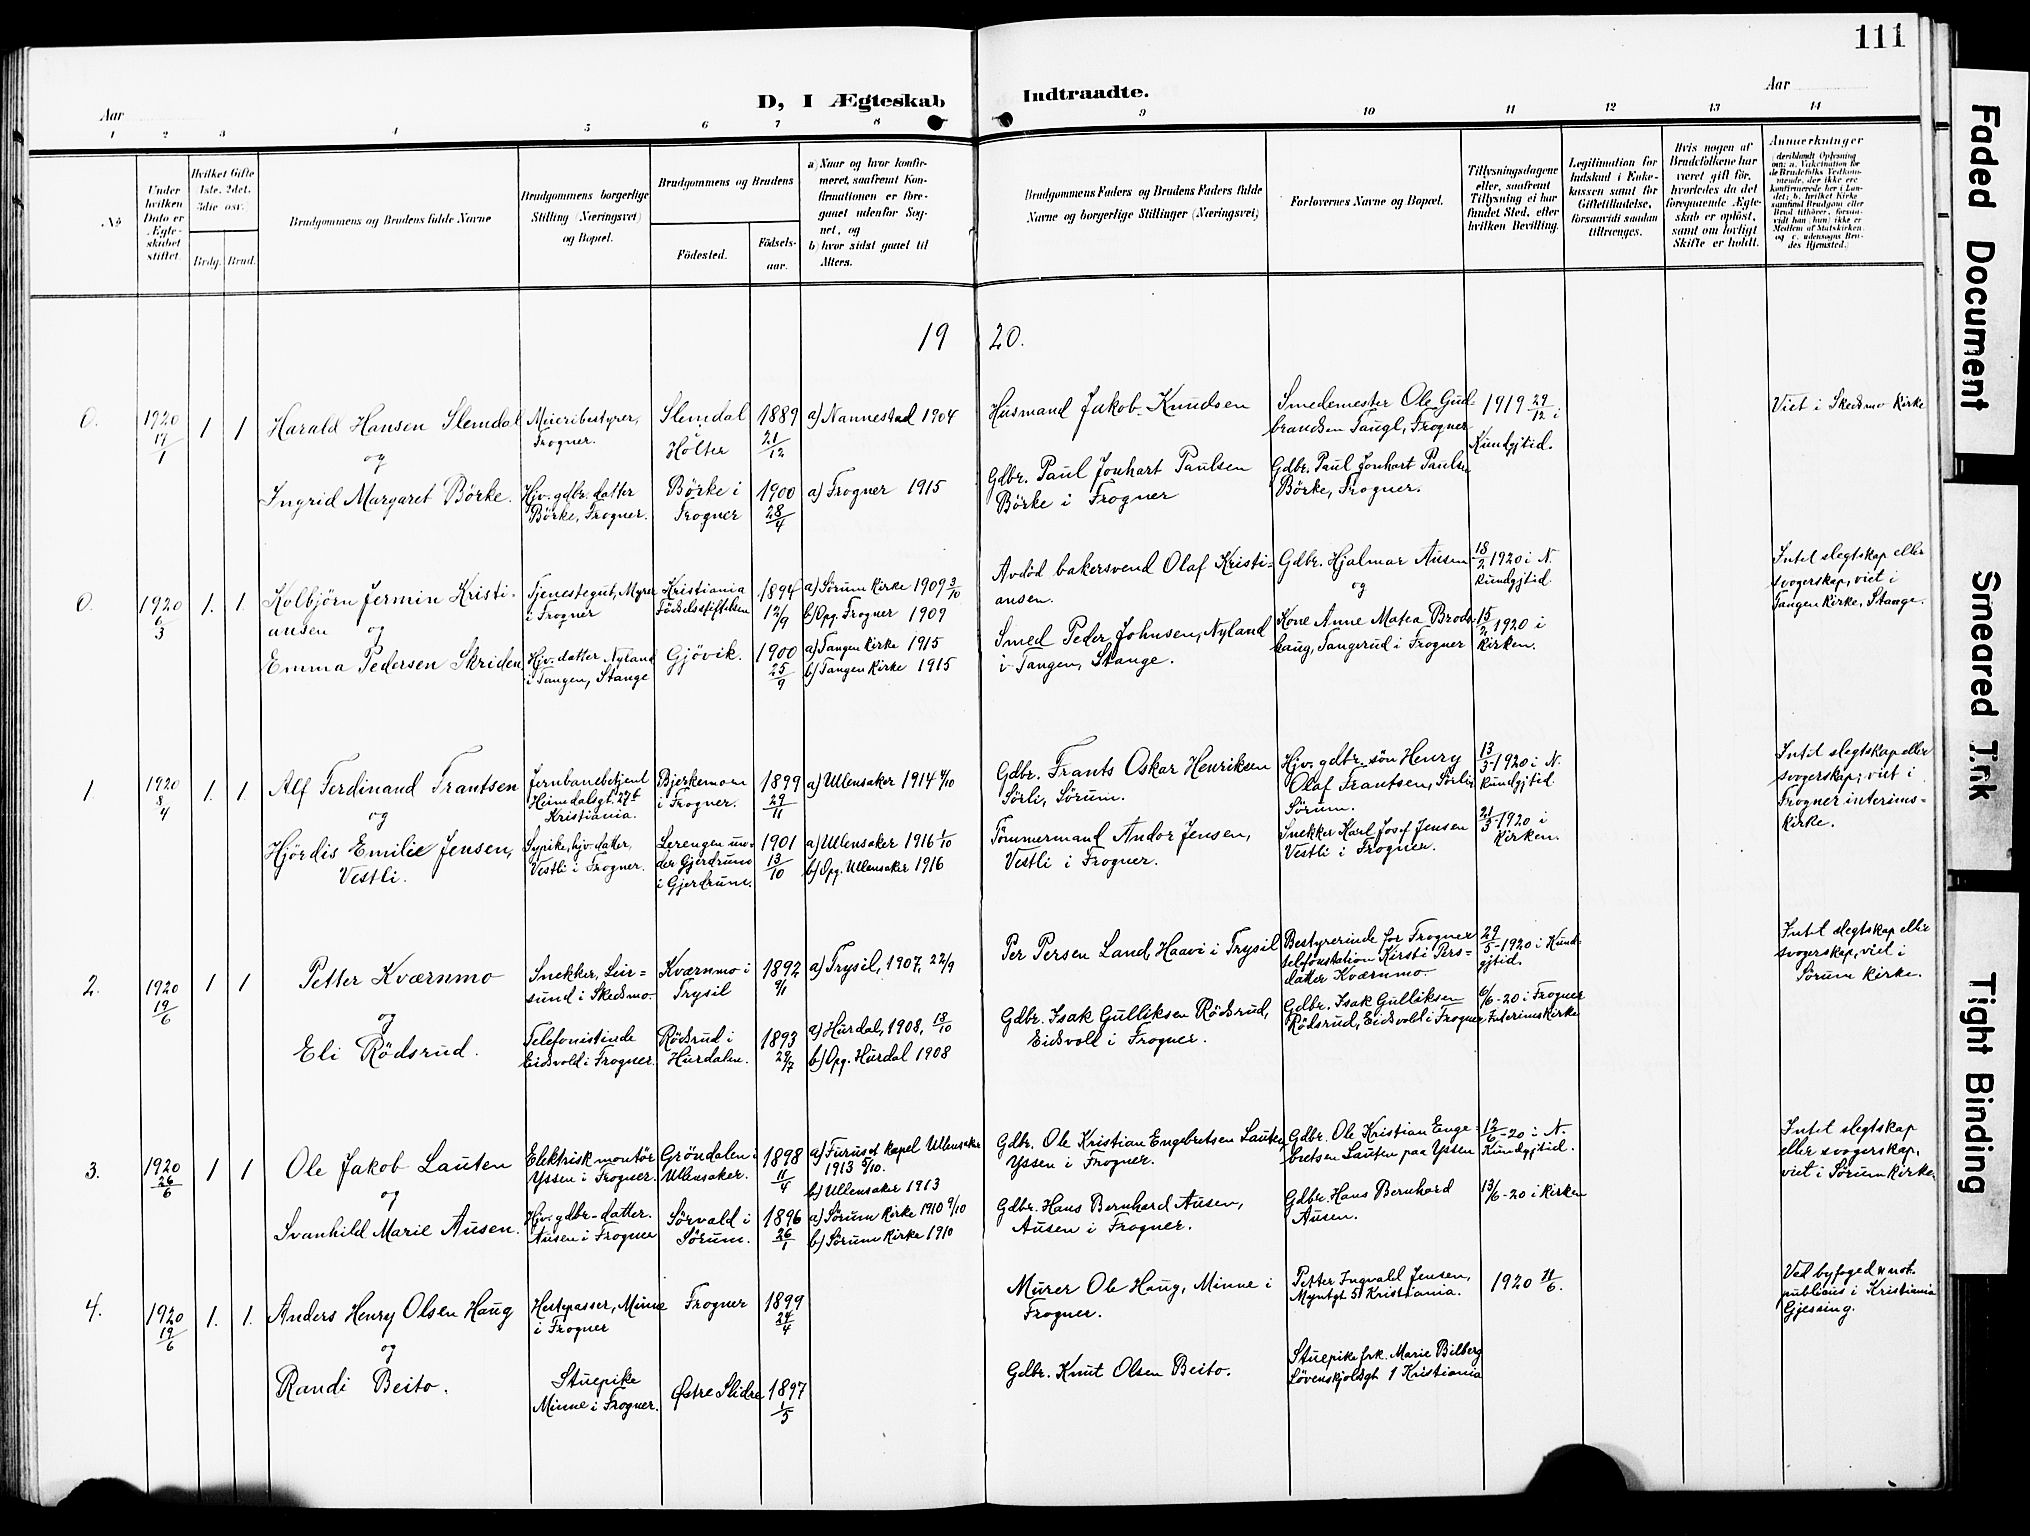 111
D, I Ægteskab Indtraadte.
Aar
Aar
1 2 3 4 5 6 7 8 9 10 11 12 13 14
No
Under hvilken Dato er Ægteskabet stiftet.
Hvilket Gifte 1ste, 2det, 3die osv.
Brdg. Brud.
Brudgommens og Brudens fulde Navne
Brudgommens borgerlige Stilling (Næringsvei) og Bopæl.
Brudgommens og Brudens
Födested.
Födselsaar.
a) Naar og hvor konfirmeret, saafremt Konfirmationen er foregaaet udenfor Sognet, og
b) hvor sidst gaaet til Alters.
Brudgommens Faders og Brudens Faders fulde Navne og borgerlige Stillinger (Næringsvei)
Forlovernes Navne og Bopæl.
Tillysningsdagene eller, saafremt Tillysning ei har fundet Sted, efter hvilken Bevilling.
Legitimation for Indskud i Enkekassen samt for Giftetilladelse, forsaavidt saadan tiltrænges.
Hvis nogen af Brudefolkene har været gift før, hvorledes da det foregaaende Ægteskab er opløst, samt om lovligt Skifte er holdt.
Anmærkninger
(deriblandt Oplysning om: a. Vakcination for de Brudefolks Vedkommende, der ikke ere konfirmerede her i Landet; b. hvilket Kirkesamfund Brudgom eller Brud tilhører, forsaavidt han (hun) ikke er Medlem af Statskirken, og c. udensogns Brudes Hjemsted.)
1920.
0.
1920 19/1
1 1
Harald Hansen Slemdal
og
Ingrid Margaret Börke.
Meieribestyrer, Frogner.
Hjv. gdbr. datter Börke, Frogner.
Slemdal Holter
Börke i Frogner
1889 21/12
1900 28/4
a) Nannestad 1904
a) Frogner 1915
Husmand Jakob Knudsen
Gdbr. Paul Jonhart Paulsen
Börke i Frogner
Smedemester Ole Gudbrandsen Taugl, Frogner
Gdbr. Paul Jonhart Paulsen
Börke, Frogner.
1919 29/12 i Kundgjtid.
Viet i Skedsmo Kirke
0.
1920 6/3
1. 1.
Kolbjörn Jermin Kristiansen og
Emma Pedersen Skriden
Tjenestegut, Myrer i Frogner
Hjv. datter Nyland i Tangen, Stange
Kristiania Födselsstiftelsen
Gjövik.
1894 12/9
1900 25/9
a) Sørum Kirke 1909 3/10
b) Opg. Frogner 1909
a) Tangen Kirke 1915
b) Tangen Kirke 1915
Avdöd bakersvend Olaf Kristiansen.
Smed Peder Johnsen, Nyland
i Tangen, Stange.
Gdbr. Hjalmar Ausen
og
Kone Anne Matea Brodshaug, Tangerud i Frogner
18/2 1920 i N. Kundgjtid.
15/2 1920 i Kirken.
Intet slegtskap eller
svogerskap, viet i
Tangen Kirke, Stange.
1
1920 8/4
1. 1.
Alf Ferdinand Frantsen
og
Hjördis Emilie Jensen,
Vestli.
Jernbanebetjent Heimdalsgt. 27 b Kristiania.
Sypike, hjv. datter, Vestli i Frogner.
Bjerkemoen i Frogner.
Lerengen under Gjerdrum i Gjerdrum.
1899 29/11
1901 13/10
a) Ullensaker 1914 4/10
a) Ullensaker 1916 1/10
b) Opg. Ullensaker 1916
Gdbr. Frants Oskar Henriksen
Sörli, Sörum.
Tömmermand Andor Jensen,
Vestli i Frogner.
Hjv. gdbr. sön Henry
Olaf Frantsen, Sörli
Sörum.
Snekker Karl Josef Jensen
Vestli i Frogner.
13/3-1920 i N. Kundgjtid
21/3-1920 i Kirken.
Intet slegtskap eller
svogerskap; viet i
Frogner interims-
kirke.
2.
1920 19/6
1 1
Petter Kværnmo
og
Eli Rödsrud.
Snekker, Leirsund i Skedsmo.
Telefonistinde Eidsvold i Frogner.
Kværnmo i Trysil
Rödsrud i Hurdalen.
1892 9/1
1893 29/7
a) Trysil, 1907, 22/9
a) Hurdal, 1908, 18/10
b) Opg. Hurdal 1908
Per Persen Land, Haavi i Trysil
Gdbr. Isak Gulliksen Rödsrud,
Eidsvold i Frogner.
Bestyrerinde for Frogner
telefonstation Kirsti Persdatter Kværnmo
Gdbr. Isak Gulliksen
Rödsrud, Eidsvold i Frogner
29/5-1920 i Kundgjtid.
6/6-20 i Frogner Interimskirke
Intet slegtskap eller
svogerskap, viet i
Sörum Kirke.
3.
1920 26/6
1 1
Ole Jakob Lauten
og
Svanhild Marie Ausen.
Elektrisk montör Yssen i Frogner.
Hjv. gdbr-datter. Ausen i Frogner
Gröndalen i Ullensaker.
Sörvald i Sörum.
1898 11/4
1896 26/1
a) Furuset Kapel Ullensaker 1913 5/10.
b) Ullensaker 1913
a) Sörum Kirke 1910 9/10
b) Sörum Kirke 1910
Gdbr. Ole Kristian Engebretsen Lauten
Yssen i Frogner.
Gdbr. Hans Bernhard Ausen,
Ausen i Frogner.
Gdbr. Ole Kristian Engebretsen Lauten paa Yssen
Gdbr. Hans Bernhard
Ausen.
12/6-20 i N. Kundgjtid.
13/6-20 i Kirken
Intet slegtskap
eller svogerskap,
viet i Sörum Kirke.
4.
1920 19/6
1. 1.
Anders Henry Olsen Haug
og
Randi Beito.
Hestepasser, Minne i Frogner
Stuepike Minne i Frogner.
Frogner
Østre Slidre
1899 24/4
1897 1/5
Murer Ole Haug, Minne i
Frogner.
Gdbr. Knut Olsen Beito.
Petter Ingvald Jensen,
Myntgt 5 Kristiania.
Stuepike frk. Marie Bilberg
Løvenskjoldsgt 1 Kristiania
1920 11/6.
Ved byfoged & not.
publicus i Kristiania
Gjessing.
Faded Document
Smeared Ink
Tight Binding